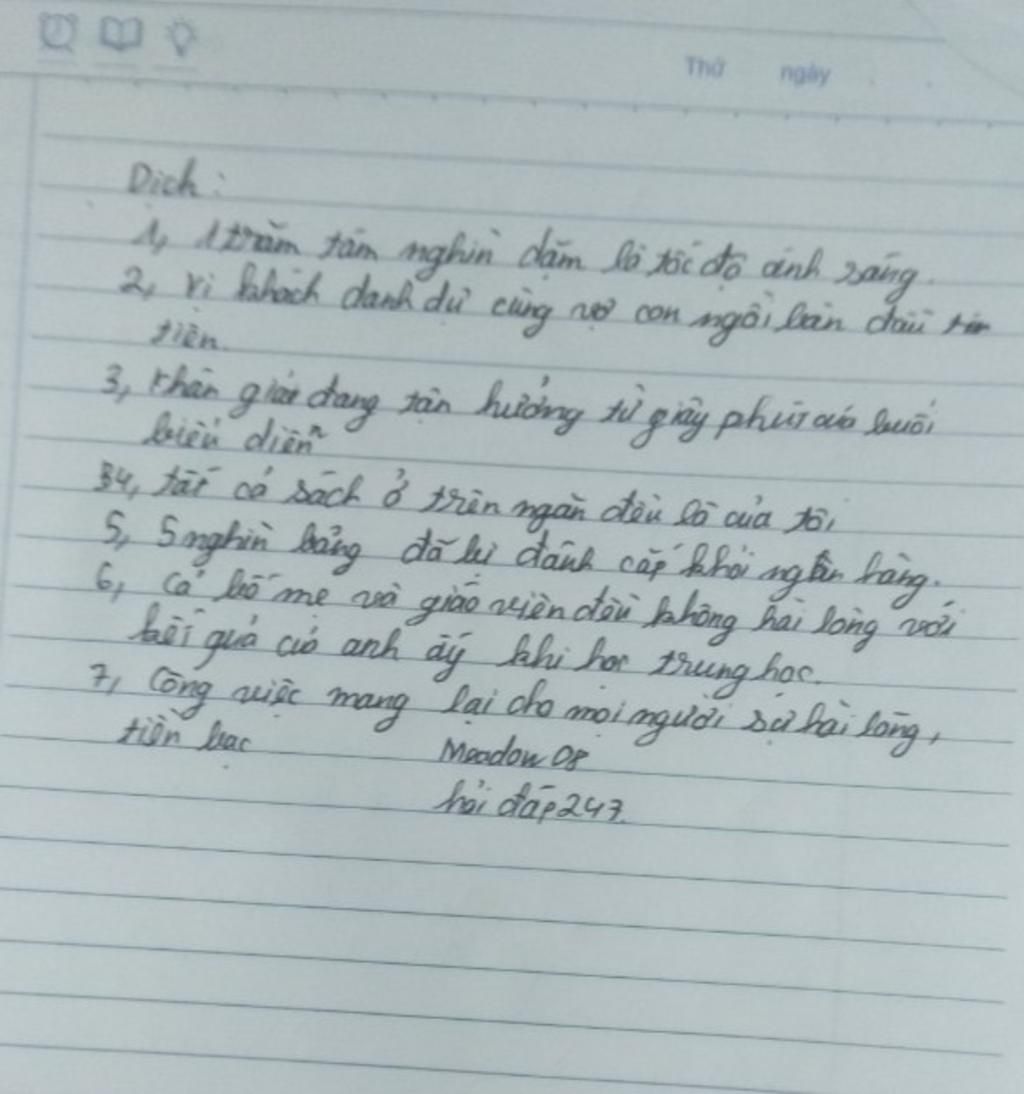 Thứ ngày
Dịch:
1, 1 trăm tám nghìn dặm là tốc độ ánh sáng.
2, vị khách danh dự cùng vợ con ngồi bàn đầu
tiên.
3, khán giả đang tận hưởng từ giây phút của buổi
biểu diễn
34, tất cả sách ở trên ngăn đều là của tôi
5, 5 nghìn bảng đã bị đánh cắp khỏi ngân hàng.
6, cả bố mẹ và giáo viên đều không hài lòng với
kết quả của anh ấy khi học trung học.
7, Công việc mang lại cho mọi người sự hài lòng,
tiền bạc
Meadow 08
hỏi đáp 247.